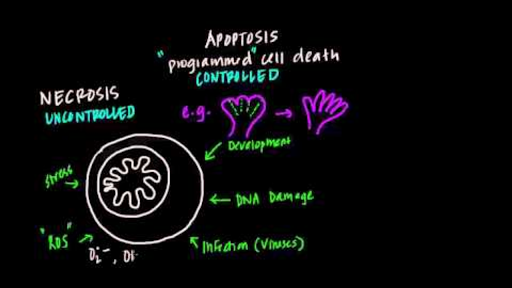 APOPTOSIS
"programmed" cell death
CONTROLLED
NECROSIS
UNCONTROLLED
e.g.
Development
Stress
DNA Damage
"ROS"
Infection (Viruses)
O₂⁻, OH